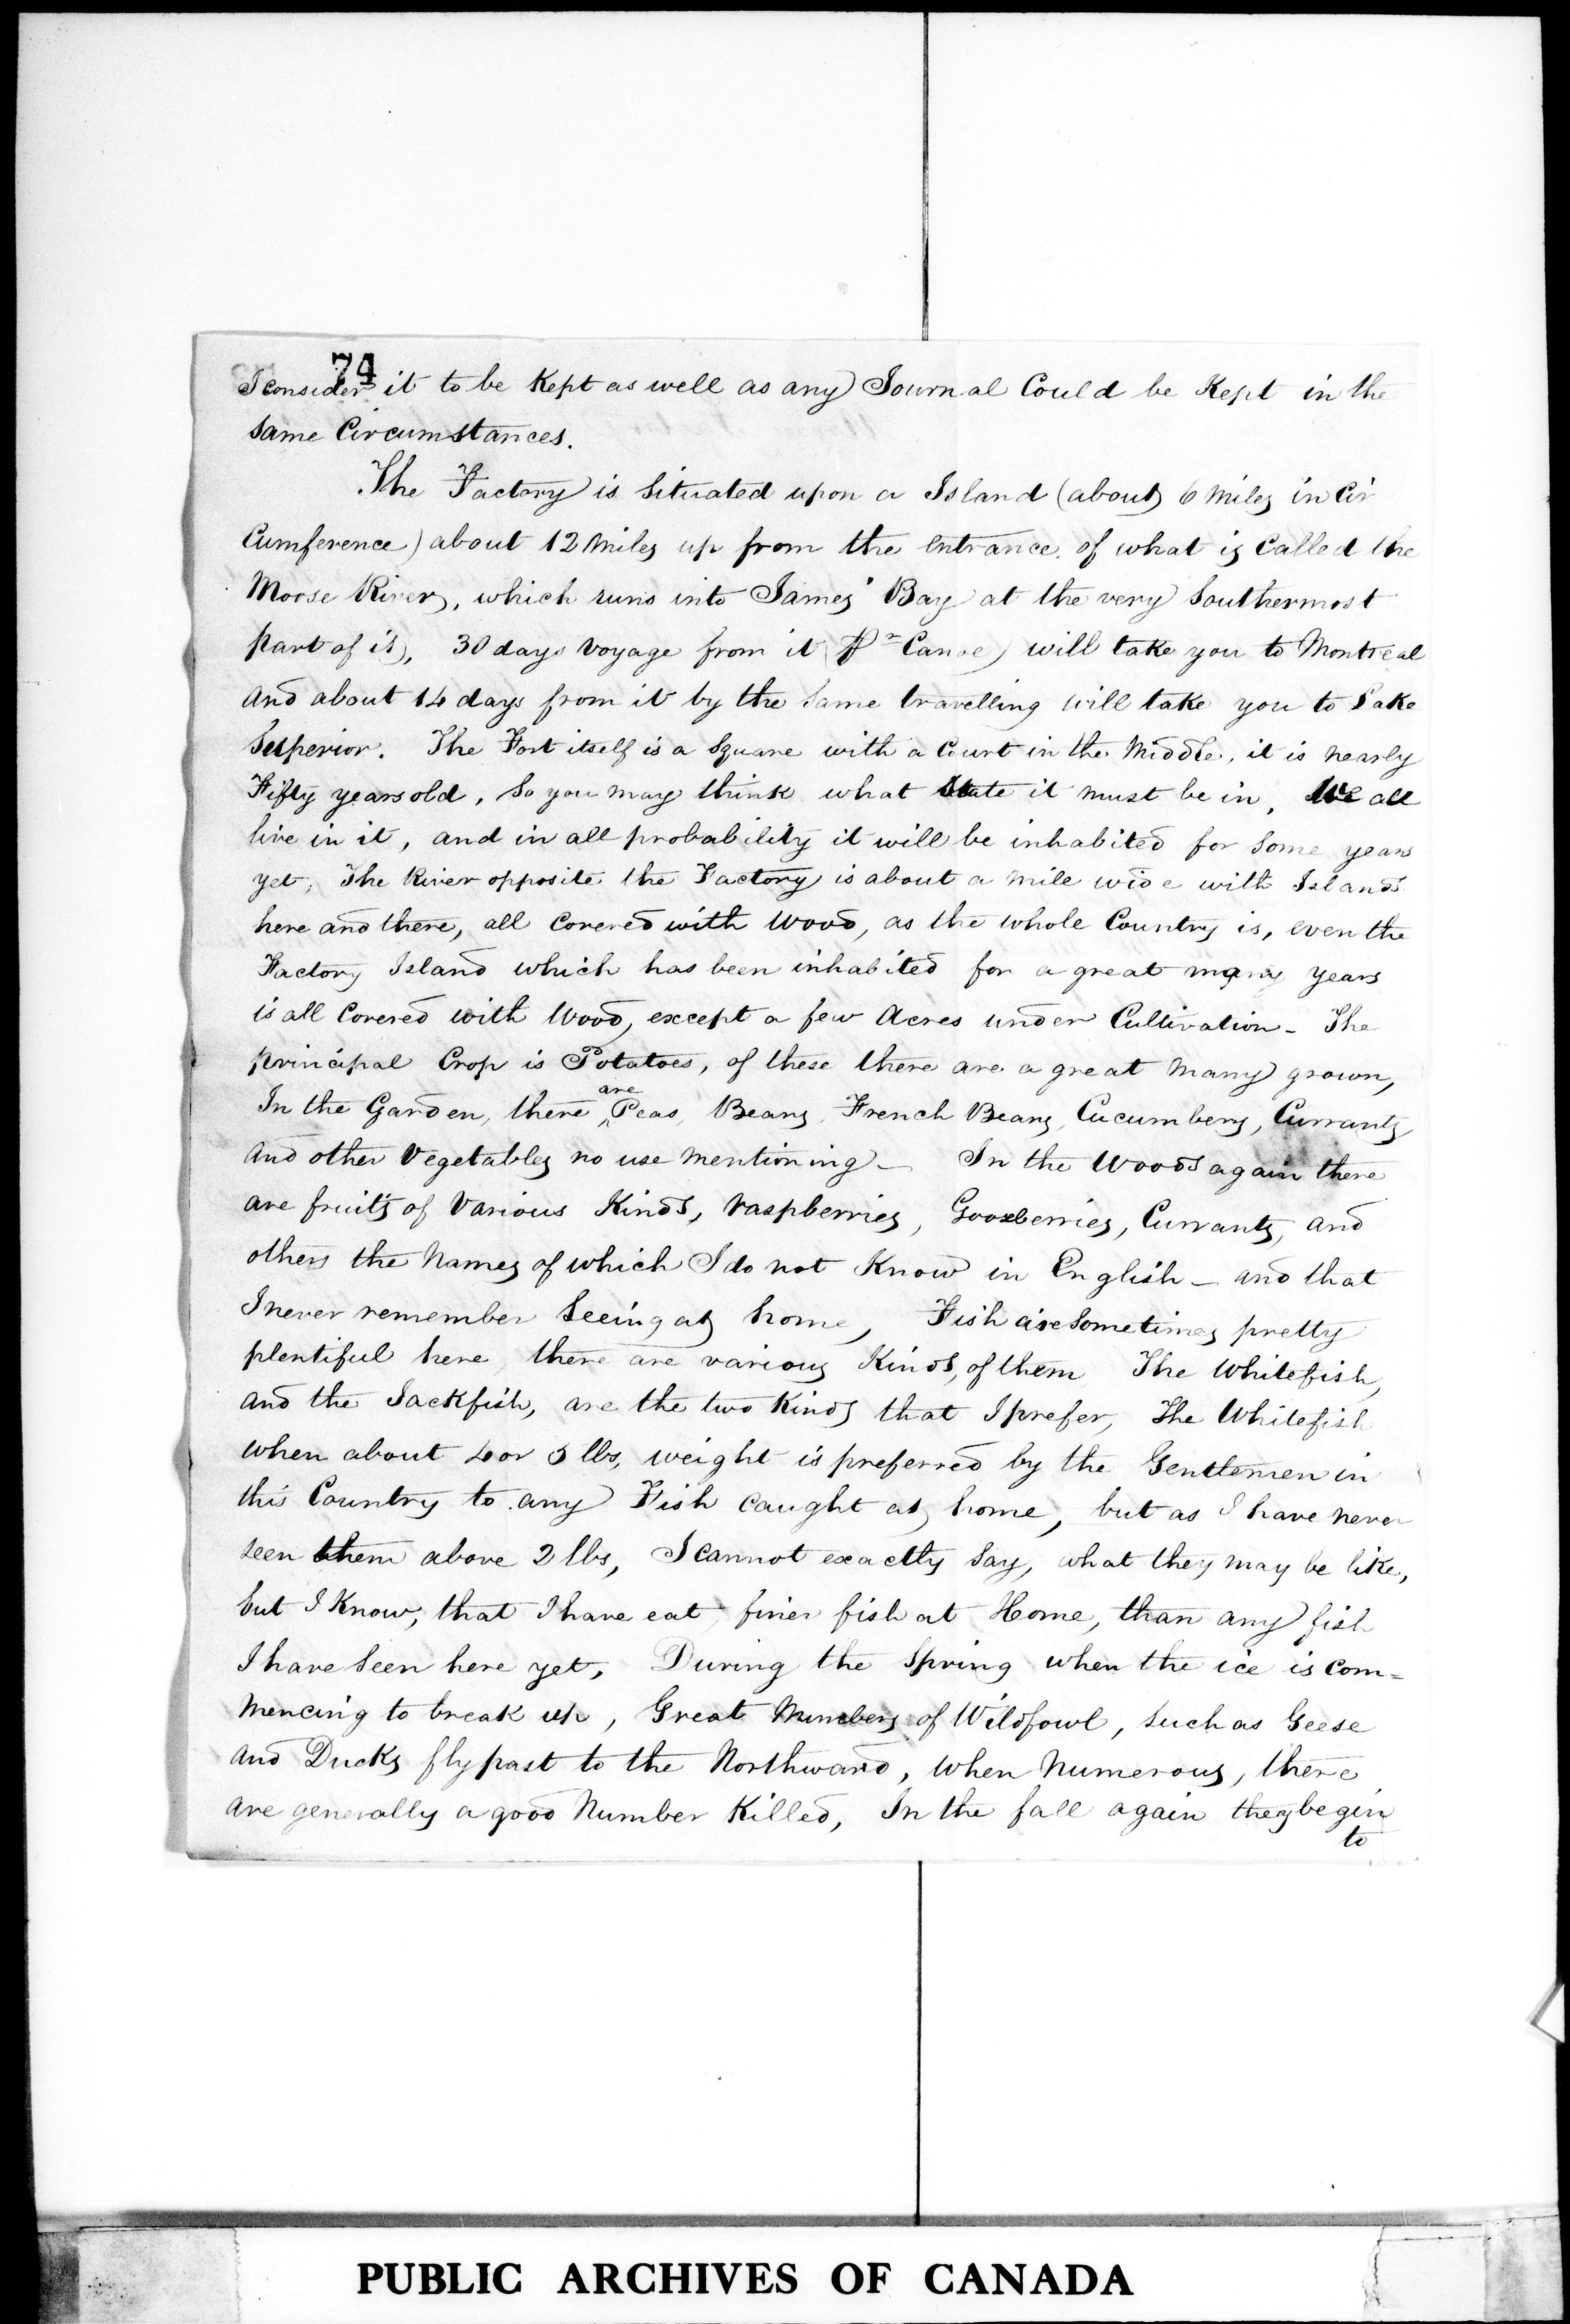 74
I consider it to be Kept as well as any Journal Could be Kept in the
same Circumstances.
The Factory is Situated upon a Island (about 6 Miles in Cir
Cumference) about 12 Miles up from the entrance of what is Called the
Moose River, which runs into James' Bay at the very Southermost
part of it, 30 days Voyage from it Pr Canoe) will take you to Montreal
and about 14 days from it by the Same travelling will take you to Lake
Superior. The Fort itself is a Square with a Court in the Middle, it is nearly
Fifty years old, So you may think what State it must be in, We all
live in it, and in all probability it will be inhabited for Some years
yet, The River opposite the Factory is about a mile wide with Islands
here and there, all Covered with Wood, as the whole Country is, even the
Factory Island which has been inhabited for a great many years
is all Covered with Wood, except a few Acres under Cultivation - The
principal Crop is Potatoes, of these there are a great Many grown,
In the Garden, there are Peas, Beans, French Beans, Cucumbers, Currants
and other Vegetables no use mentioning - In the Woods again there
are fruits of Various Kinds, raspberries, Gooseberries, Currants, and
others the Names of which I do not Know in English - and that
I never remember Seeing at home, Fish are Sometimes pretty
plentiful here, there are various Kinds, of them The Whitefish,
and the Sackfish, are the two Kinds that I prefer, The Whitefish
when about 4 or 5 lbs, weight is preferred by the Gentlemen in
this Country to any Fish Caught at home, but as I have never
seen them above 2 lbs, I cannot exactly Say, what they may be like,
but I Know, that I have eat finer fish at Home, than any fish
I have Seen here yet, During the Spring when the ice is com=
mencing to break up, Great Numbers of Wildfowl, Such as Geese
and Ducks fly past to the Northward, When Numerous, there
are generally a good Number Killed, In the fall again they begin
to
PUBLIC ARCHIVES OF CANADA